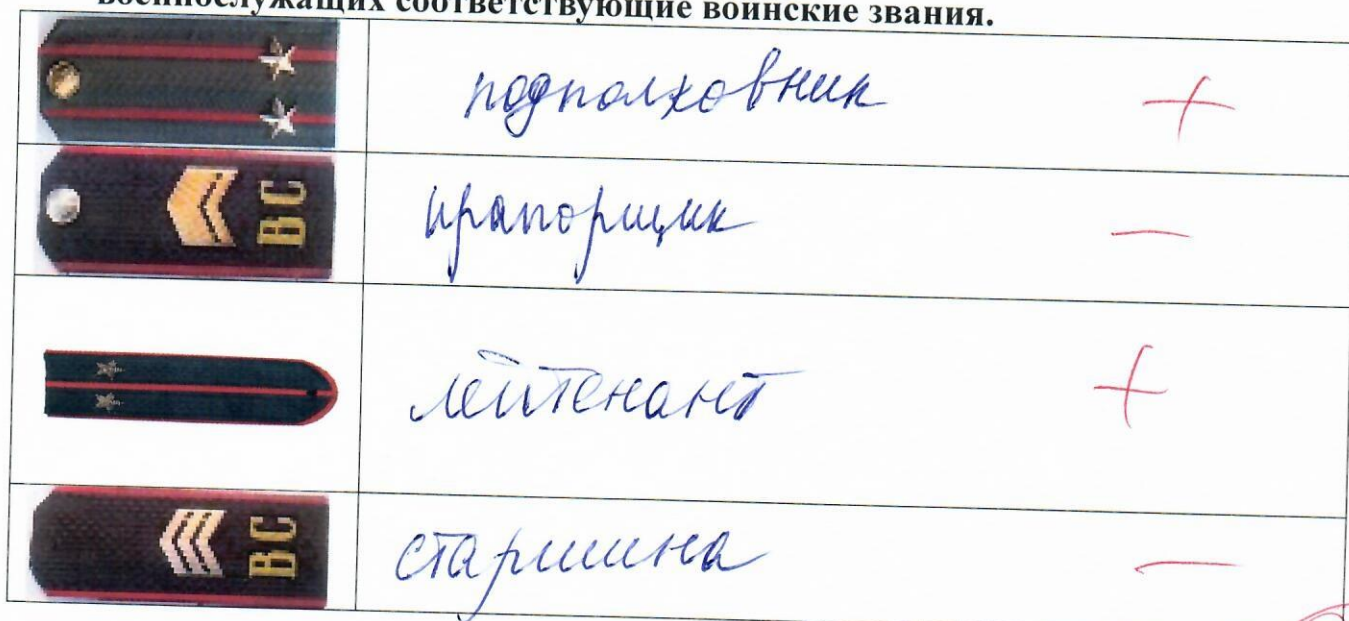 военнослужащих соответствующие воинские звания.
подполковник +
ВС прапорщик -
лейтенант +
ВС старшина -